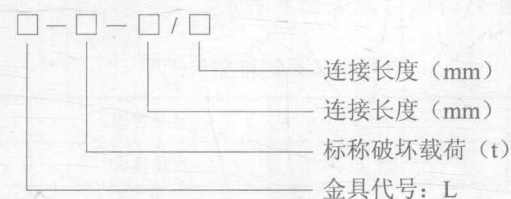 □－□－□/□
连接长度（mm）
连接长度（mm）
标称破坏载荷（t）
金具代号：L